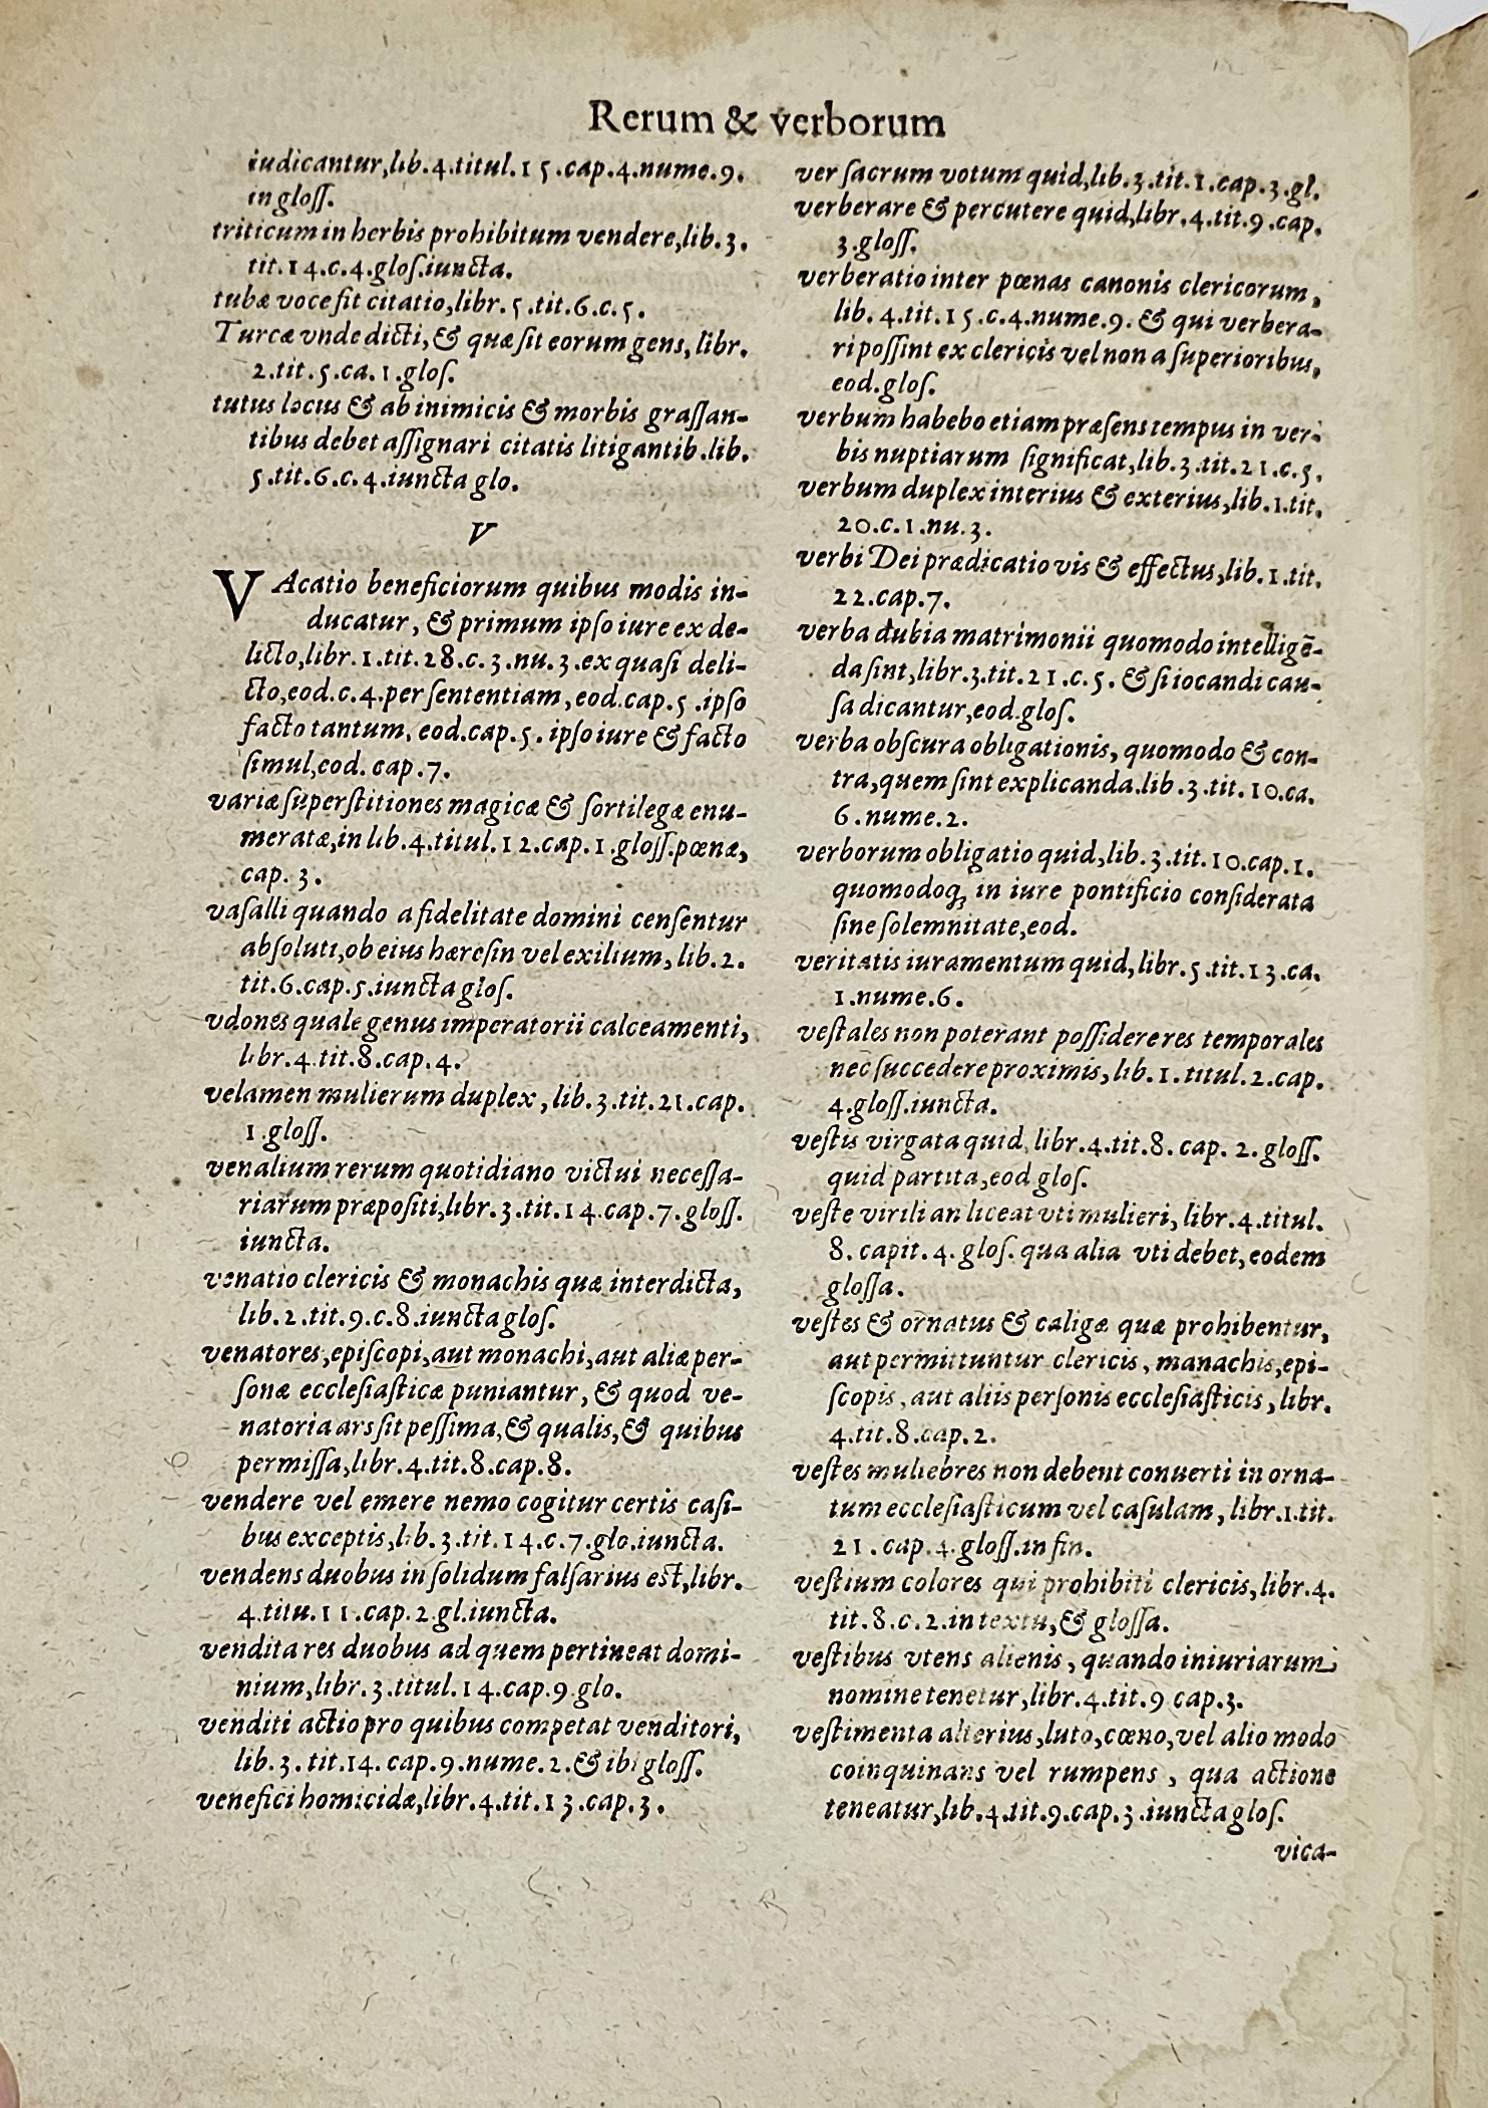 Rerum & verborum
iudicantur,lib.4.titul.15.cap.4.nume.9.
in gloſſ.
triticum in herbis prohibitum vendere,lib.3.
tit.14.c.4.gloſ.iuncta.
tubæ voce fit citatio,libr.5.tit.6.c.5.
Turcæ vnde dicti,& quæ ſit eorum gens,libr.
2.tit.5.ca.1.gloſ.
tutus locus & ab inimicis & morbis graſſan-
tibus debet aſſignari citatis litigantib.lib.
5.tit.6.c.4.iuncta glo.
V
VAcatio beneficiorum quibus modis in-
ducatur, & primum ipſo iure ex de-
licto,libr.1.tit.28.c.3.nu.3.ex quaſi deli-
cto,eod.c.4.per ſententiam,eod.cap.5.ipſo
facto tantum, eod.cap.5.ipſo iure & facto
ſimul,eod.cap.7.
variæ ſuperſtitiones magicæ & ſortilegæ enu-
meratæ,in lib.4.titul.12.cap.1.gloſſ.pœnæ,
cap.3.
vaſalli quando a fidelitate domini cenſentur
abſoluti,ob eius hæreſin vel exilium,lib.2.
tit.6.cap.5.iuncta gloſ.
vdones quale genus imperatorii calceamenti,
libr.4.tit.8.cap.4.
velamen mulierum duplex,lib.3.tit.21.cap.
1.gloſſ.
venalium rerum quotidiano victui neceſſa-
riarum præpoſiti,libr.3.tit.14.cap.7.gloſſ.
iuncta.
venatio clericis & monachis quæ interdicta,
lib.2.tit.9.c.8.iuncta gloſ.
venatores,epiſcopi,aut monachi,aut aliæ per-
ſonæ eccleſiaſticæ puniantur, & quod ve-
natoria ars ſit peſſima,& qualis,& quibus
permiſſa,libr.4.tit.8.cap.8.
vendere vel emere nemo cogitur certis caſi-
bus exceptis,lib.3.tit.14.c.7.glo.iuncta.
vendens duobus in ſolidum falſarius eſt,libr.
4.titu.11.cap.2.gl.iuncta.
vendita res duobus ad quem pertineat domi-
nium,libr.3.titul.14.cap.9.glo.
venditi actio pro quibus competat venditori,
lib.3.tit.14.cap.9.nume.2.& ibi gloſſ.
venefici homicidæ,libr.4.tit.13.cap.3.
ver ſacrum votum quid,lib.3.tit.1.cap.3.gl.
verberare & percutere quid,libr.4.tit.9.cap.
3.gloſſ.
verberatio inter pœnas canonis clericorum,
lib.4.tit.15.c.4.nume.9.& qui verbera-
ri poſſint ex clericis vel non a ſuperioribus,
eod.gloſ.
verbum habebo etiam præſens tempus in ver-
bis nuptiarum ſignificat,lib.3.tit.21.c.5.
verbum duplex interius & exterius,lib.1.tit.
20.c.1.nu.3.
verbi Dei prædicatio vis & effectus,lib.1.tit.
22.cap.7.
verba dubia matrimonii quomodo intelligẽ-
da ſint,libr.3.tit.21.c.5.& ſi iocandi cau-
ſa dicantur,eod.gloſ.
verba obſcura obligationis, quomodo & con-
tra,quem ſint explicanda.lib.3.tit.10.ca.
6.nume.2.
verborum obligatio quid,lib.3.tit.10.cap.1.
quomodoq; in iure pontificio conſiderata
ſine ſolemnitate,eod.
veritatis iuramentum quid,libr.5.tit.13.ca.
1.nume.6.
veſtales non poterant poſſidere res temporales
nec ſuccedere proximis,lib.1.titul.2.cap.
4.gloſſ.iuncta.
veſtis virgata quid,libr.4.tit.8.cap.2.gloſſ.
quid partita,eod gloſ.
veſte virili an liceat vti mulieri, libr.4.titul.
8.capit.4.gloſ.qua alia vti debet,eodem
gloſſa.
veſtes & ornatus & caligæ quæ prohibentur,
aut permittuntur clericis, manachis,epi-
ſcopis, aut aliis perſonis eccleſiaſticis,libr.
4.tit.8.cap.2.
veſtes muliebres non debent conuerti in orna-
tum eccleſiaſticum vel caſulam, libr.1.tit.
21.cap.4.gloſſ.in fin.
veſtium colores qui prohibiti clericis,libr.4.
tit.8.c.2.in textu,& gloſſa.
veſtibus vtens alienis, quando iniuriarum
nomine tenetur,libr.4.tit.9 cap.3.
veſtimenta alterius,luto,cœno,vel alio modo
coinquinans vel rumpens, qua actione
teneatur,lib.4.tit.9.cap.3.iuncta gloſ.
vica-